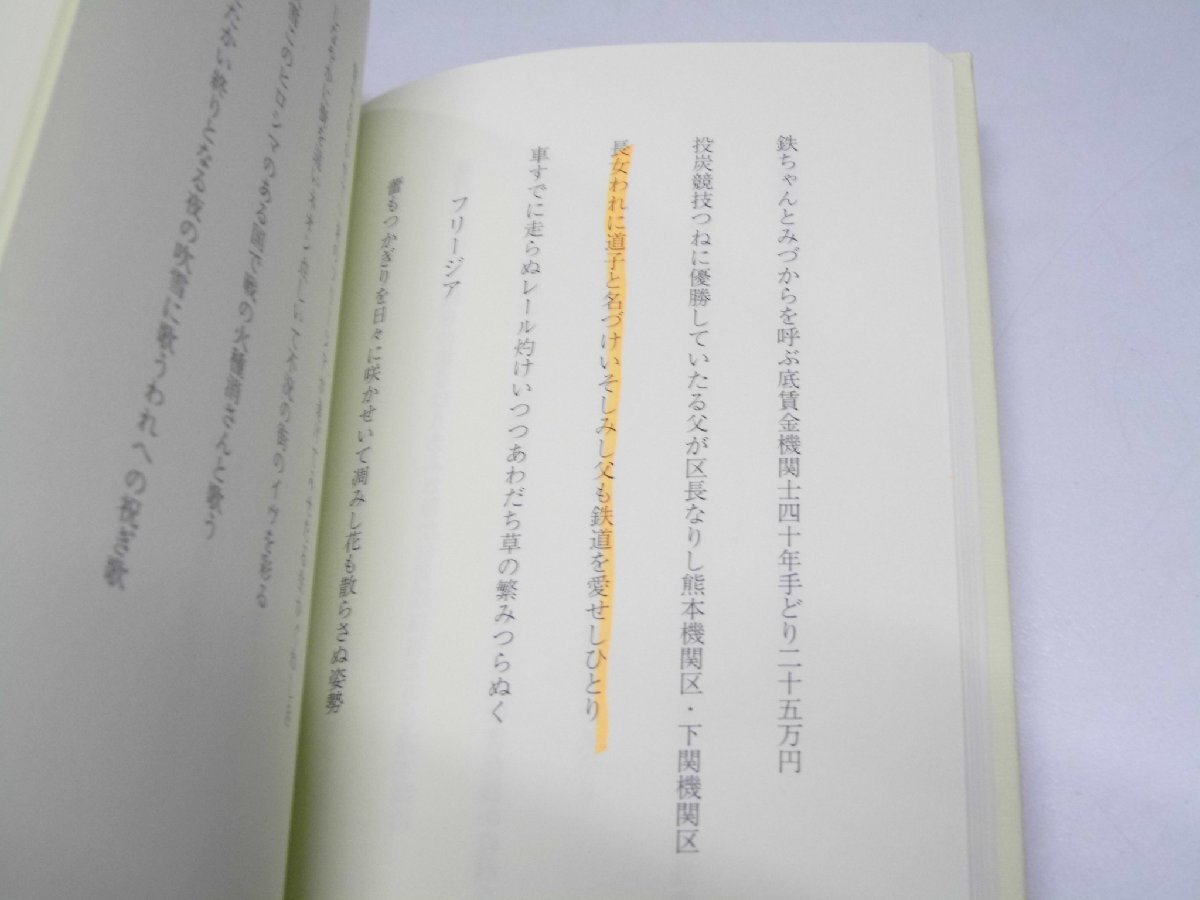 鉄ちゃんとみづからを呼ぶ底賃金機関士四十年手どり二十五万円
投炭競技つねに優勝していたる父が区長なりし熊本機関区・下関機関区
長女われに道子と名づけいそしみし父も鉄道を愛せしひとり
車すでに走らぬレール灼けいつつあわだち草の繁みつらぬく
フリージア
蕾もつかぎりを日々に咲かせいて凋みし花も散らさぬ姿勢
のヒロシマのある国で戦の火種消さんと歌う
たかい終りとなる夜の吹雪に歌うわれへの祝ぎ歌